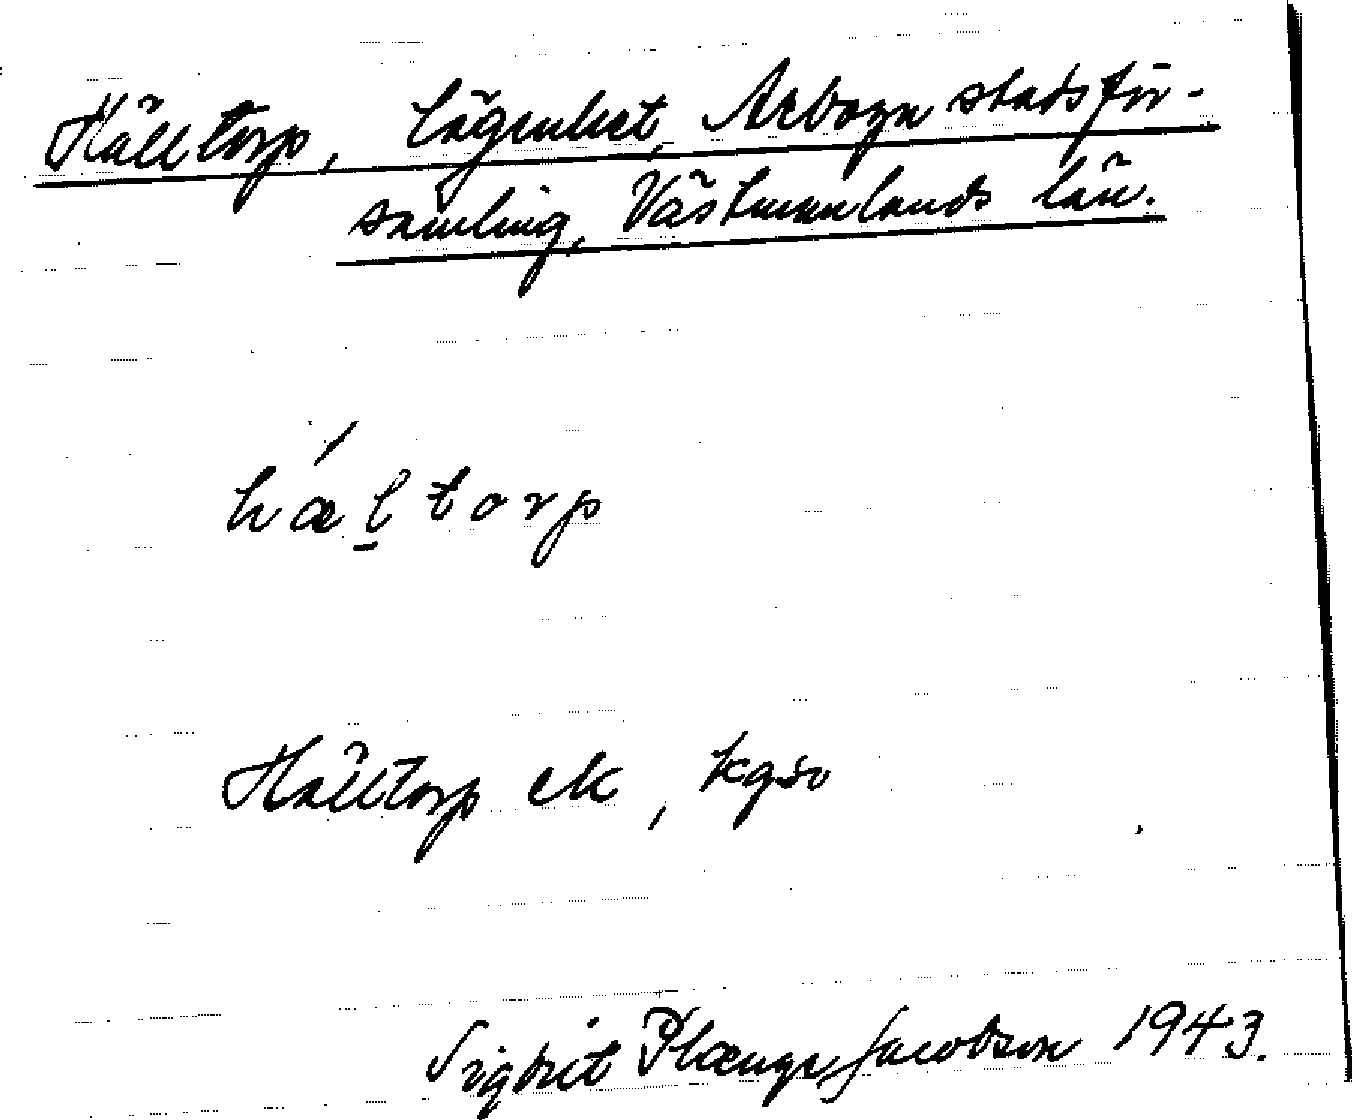 Hälltorp, lägenhet, Arboga stadsför-
samling, Västmanlands län.
hæ̀l̠torp
Hälltorp ek, kgsv
Sigbrit Plænge Jacobson 1943.